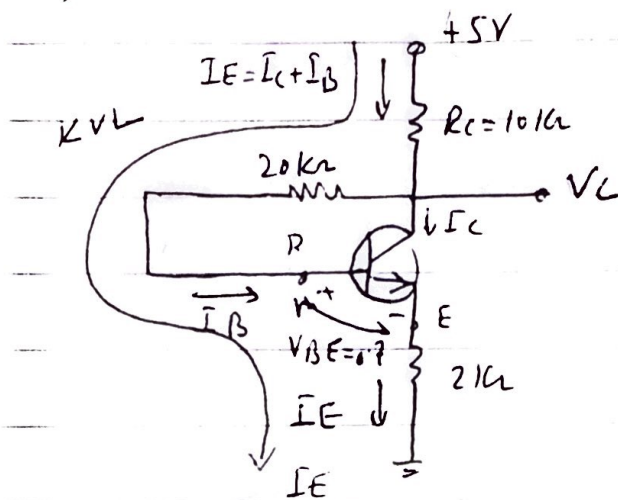 +5V
IE=IC+IB
RC=10KΩ
KVL
20KΩ
VC
IC
B
+
-
E
IB
VBE=0.7
2KΩ
IE
IE